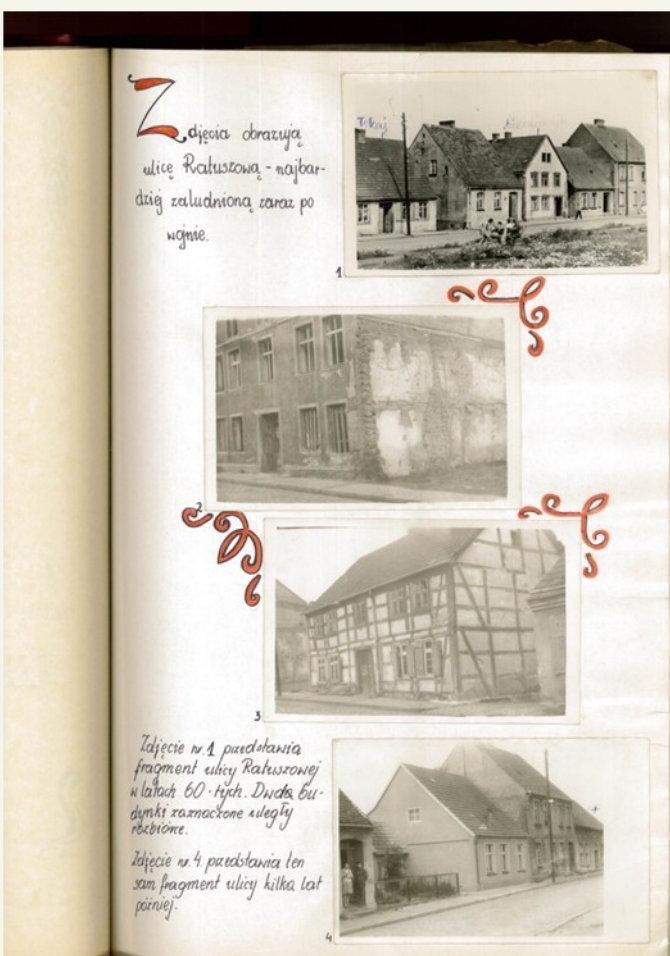 Zdjęcia obrazują
ulicę Ratuszową - najbar-
dziej zaludnioną zaraz po
wojnie.
Tokaj
1
2
3
Zdjęcie nr. 1 przedstawia
fragment ulicy Ratuszowej
w latach 60-tych. Dwa bu-
dynki zaznaczone uległy
rozbiórce.
Zdjęcie nr. 4. przedstawia ten
sam fragment ulicy kilka lat
później.
4